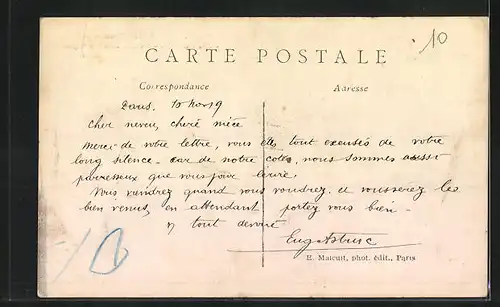 10
CARTE POSTALE
Correspondance Adresse
cher neveu, chère nièce
merci de votre lettre, vous êtes tout excusés de votre
long silence - car de notre coté, nous sommes aussi
paresseux que vous pour écrire.
Vous viendrez quand vous voudrez. et vousserez les
bien venus, en attendant portez vous bien -
tout
E. Malcuit, phot. édit., Paris